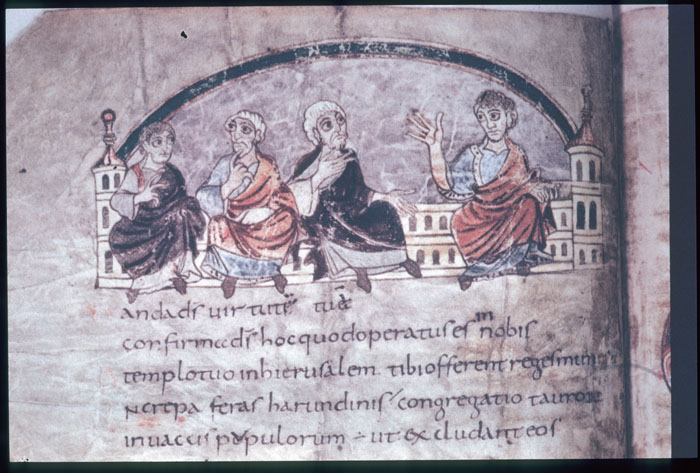 andads uirtute tuae
confirma ds hoc quod operatus es in nobis
templo tuo in hierusalem tibi offerent reges mun
Increpa feras harundinis congregatio tauror
in uaccis populorum ut excludant eos